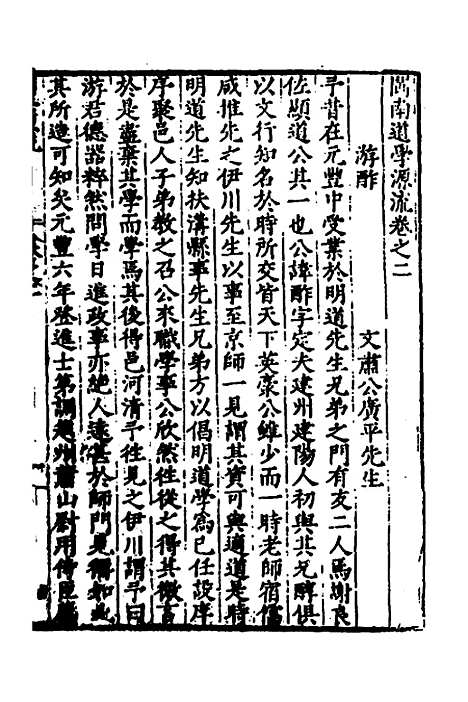 閩南道學源流卷之二
游酢　文肅公廣平先生
予昔在元豐中受業於明道先生兄弟之門有友二人焉謝良
佐顯道公其一也公諱酢字定夫建州建陽人初與其兄醇俱
以文行知名於時所交皆天下英豪公雖少而一時老師宿儒
咸推先之伊川先生以事至京師一見謂其資可與適道是時
明道先生知扶溝縣事先生兄弟方以倡明道學為已任設庠
序聚邑人子弟教之召公來職學事公欣然徃從之得其微言
於是盡棄其學而學焉其後得邑河清予徃見之伊川謂予曰
游君德器粹然問學日進政事亦絕人遠甚於師門見稱如此
其所造可知矣元豐六年登進士第調越州蕭山尉用侍臣薦